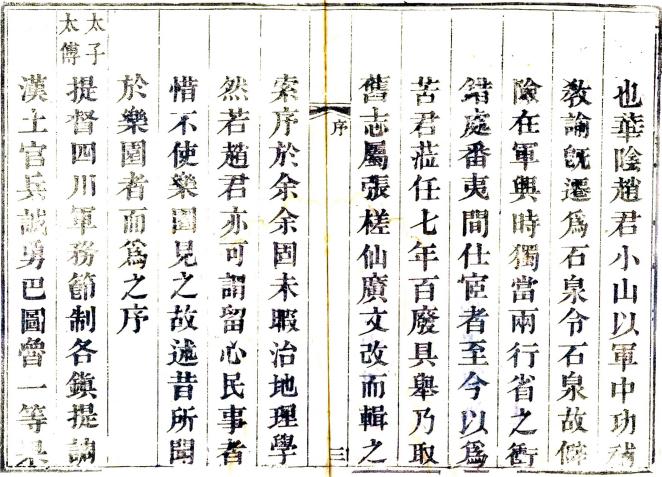 也華陰趙君小山以軍中功補
教諭旣遷爲石泉令石泉故僻
險在軍興時獨當兩行省之衝
錯處番夷間仕宦者至今以爲
苦君蒞任七年百廢具舉乃取
舊志屬張槎仙廣文改而輯之
序
三
索序於余余固未暇治地理學
然若趙君亦可謂留心民事者
惜不使樂園見之故述昔所聞
於樂園者而爲之序
太子
太傅
提督四川軍務節制各鎮提調
漢土官兵誠勇巴圖魯一等果